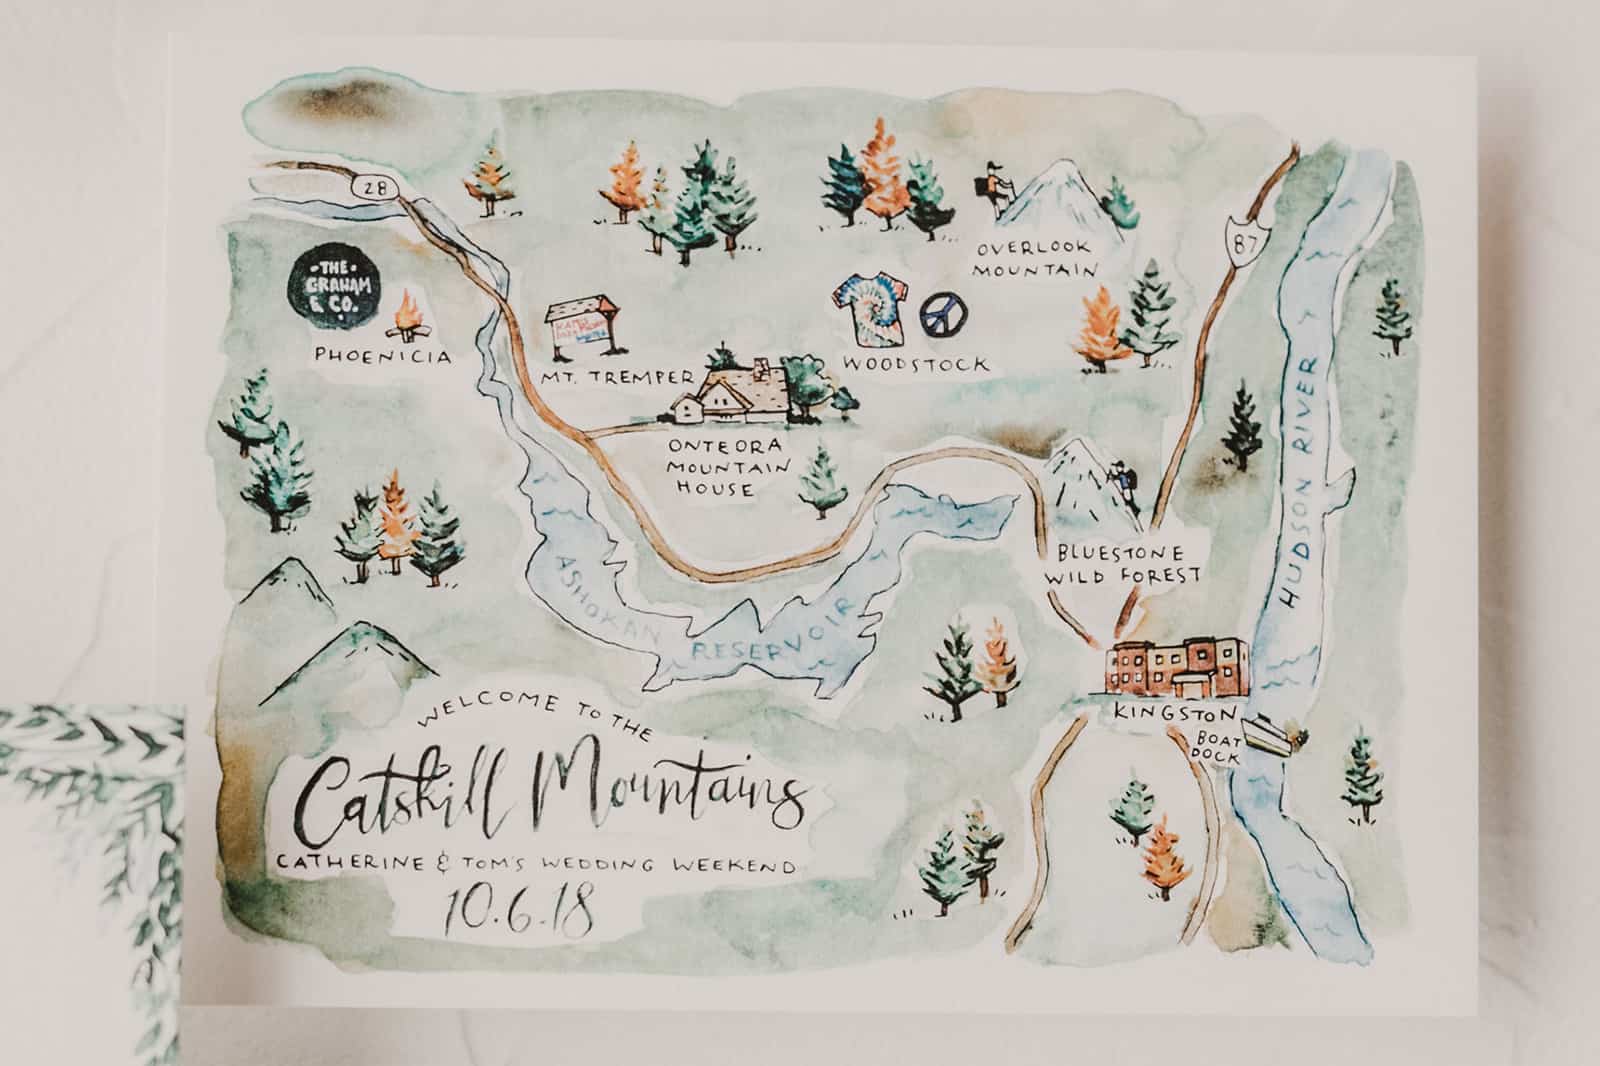 28
-THE-
GRAHAM
& CO.
PHOENICIA
MT. TREMPER
ONTEORA
MOUNTAIN
HOUSE
WOODSTOCK
OVERLOOK
MOUNTAIN
87
HUDSON RIVER
BLUESTONE
WILD FOREST
ASHOKAN RESERVOIR
KINGSTON
BOAT
DOCK
WELCOME TO THE
Catskill Mountains
CATHERINE & TOM'S WEDDING WEEKEND
10.6.18